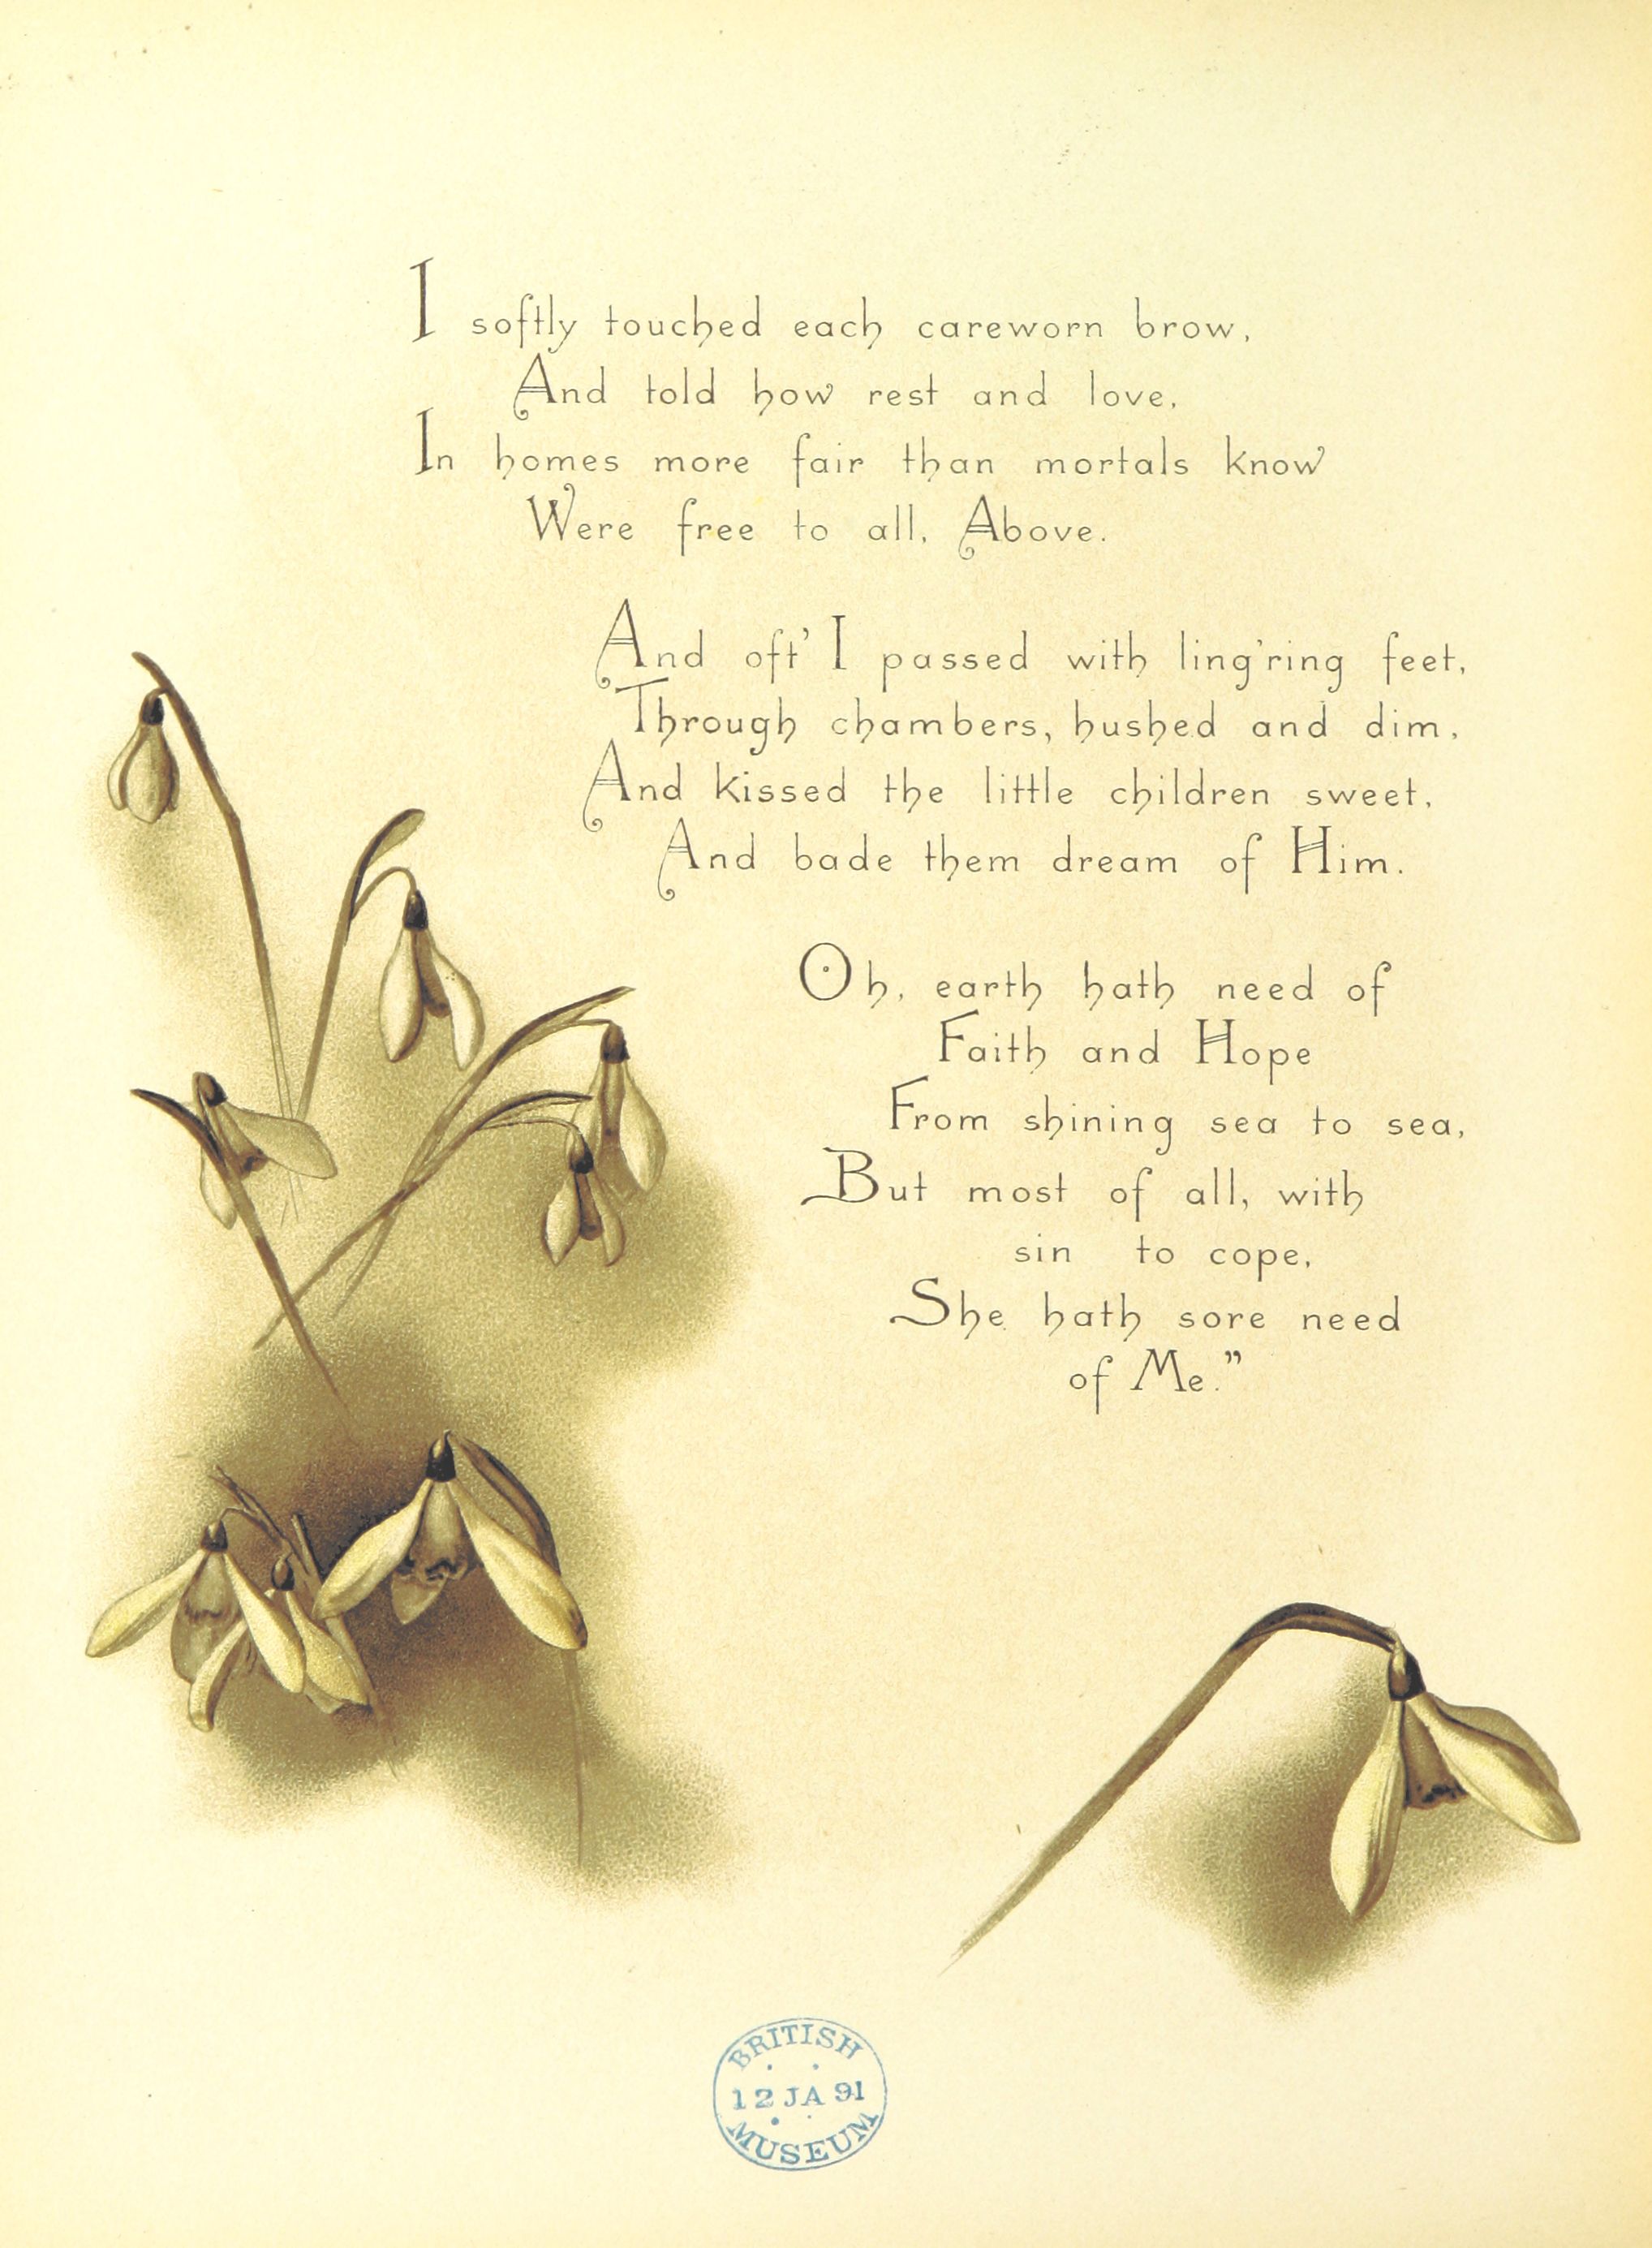 I softly touched each careworn brow,
And told how rest and love,
In homes more fair than mortals know
Were free to all, Above.
And oft' I passed with ling'ring feet,
Through chambers, hushed and dim,
And kissed the little children sweet,
And bade them dream of Him.
Oh, earth hath need of
Faith and Hope
From shining sea to sea,
But most of all, with
sin to cope,
She hath sore need
of Me."
BRITISH
12 JA 91
MUSEUM